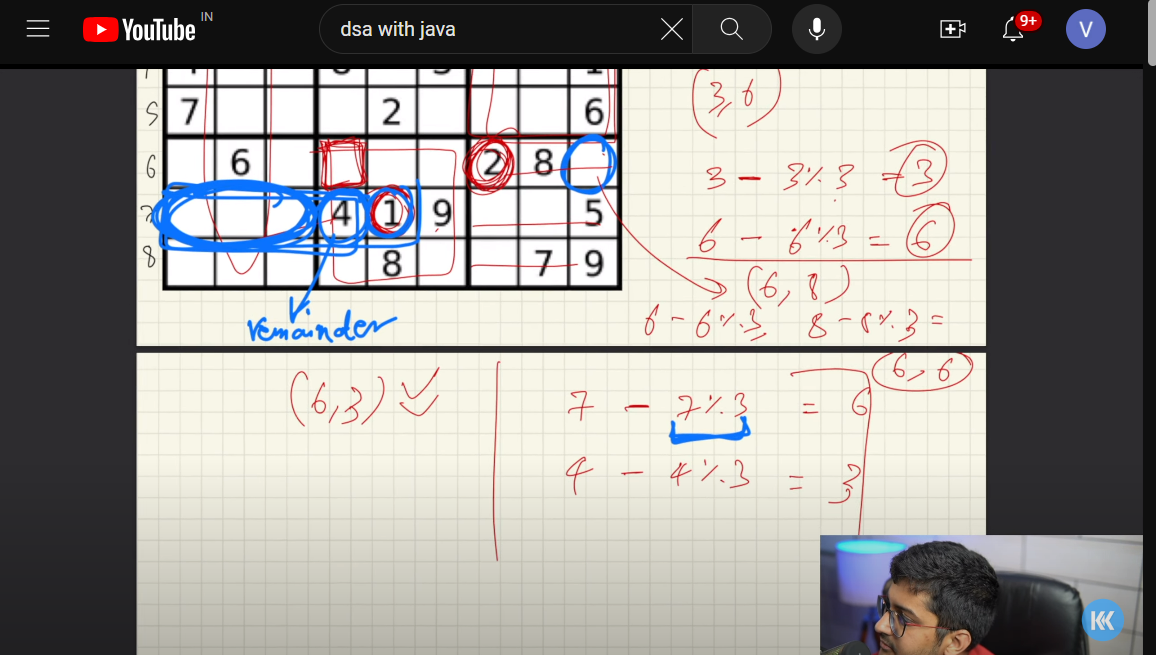 YouTube IN
dsa with java
9+
V
5 7 2 6
6 6 2 8
7 4 1 9 5
8 8 7 9
remainder
(3,6)
3 - 3%3 = 3
6 - 6%3 = 6
(6, 8)
6 - 6%3 8 - 8%3 =
(6, 6)
(6,3)
7 - 7%3 = 6
4 - 4%3 = 3
KK